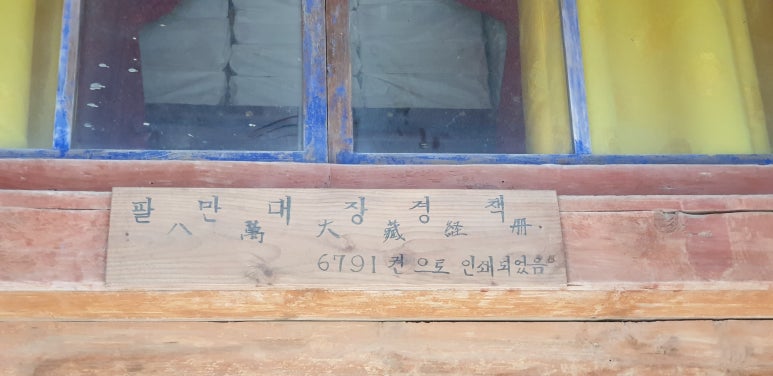 팔만대장경책
八萬大藏経册.
6791권으로 인쇄되었음